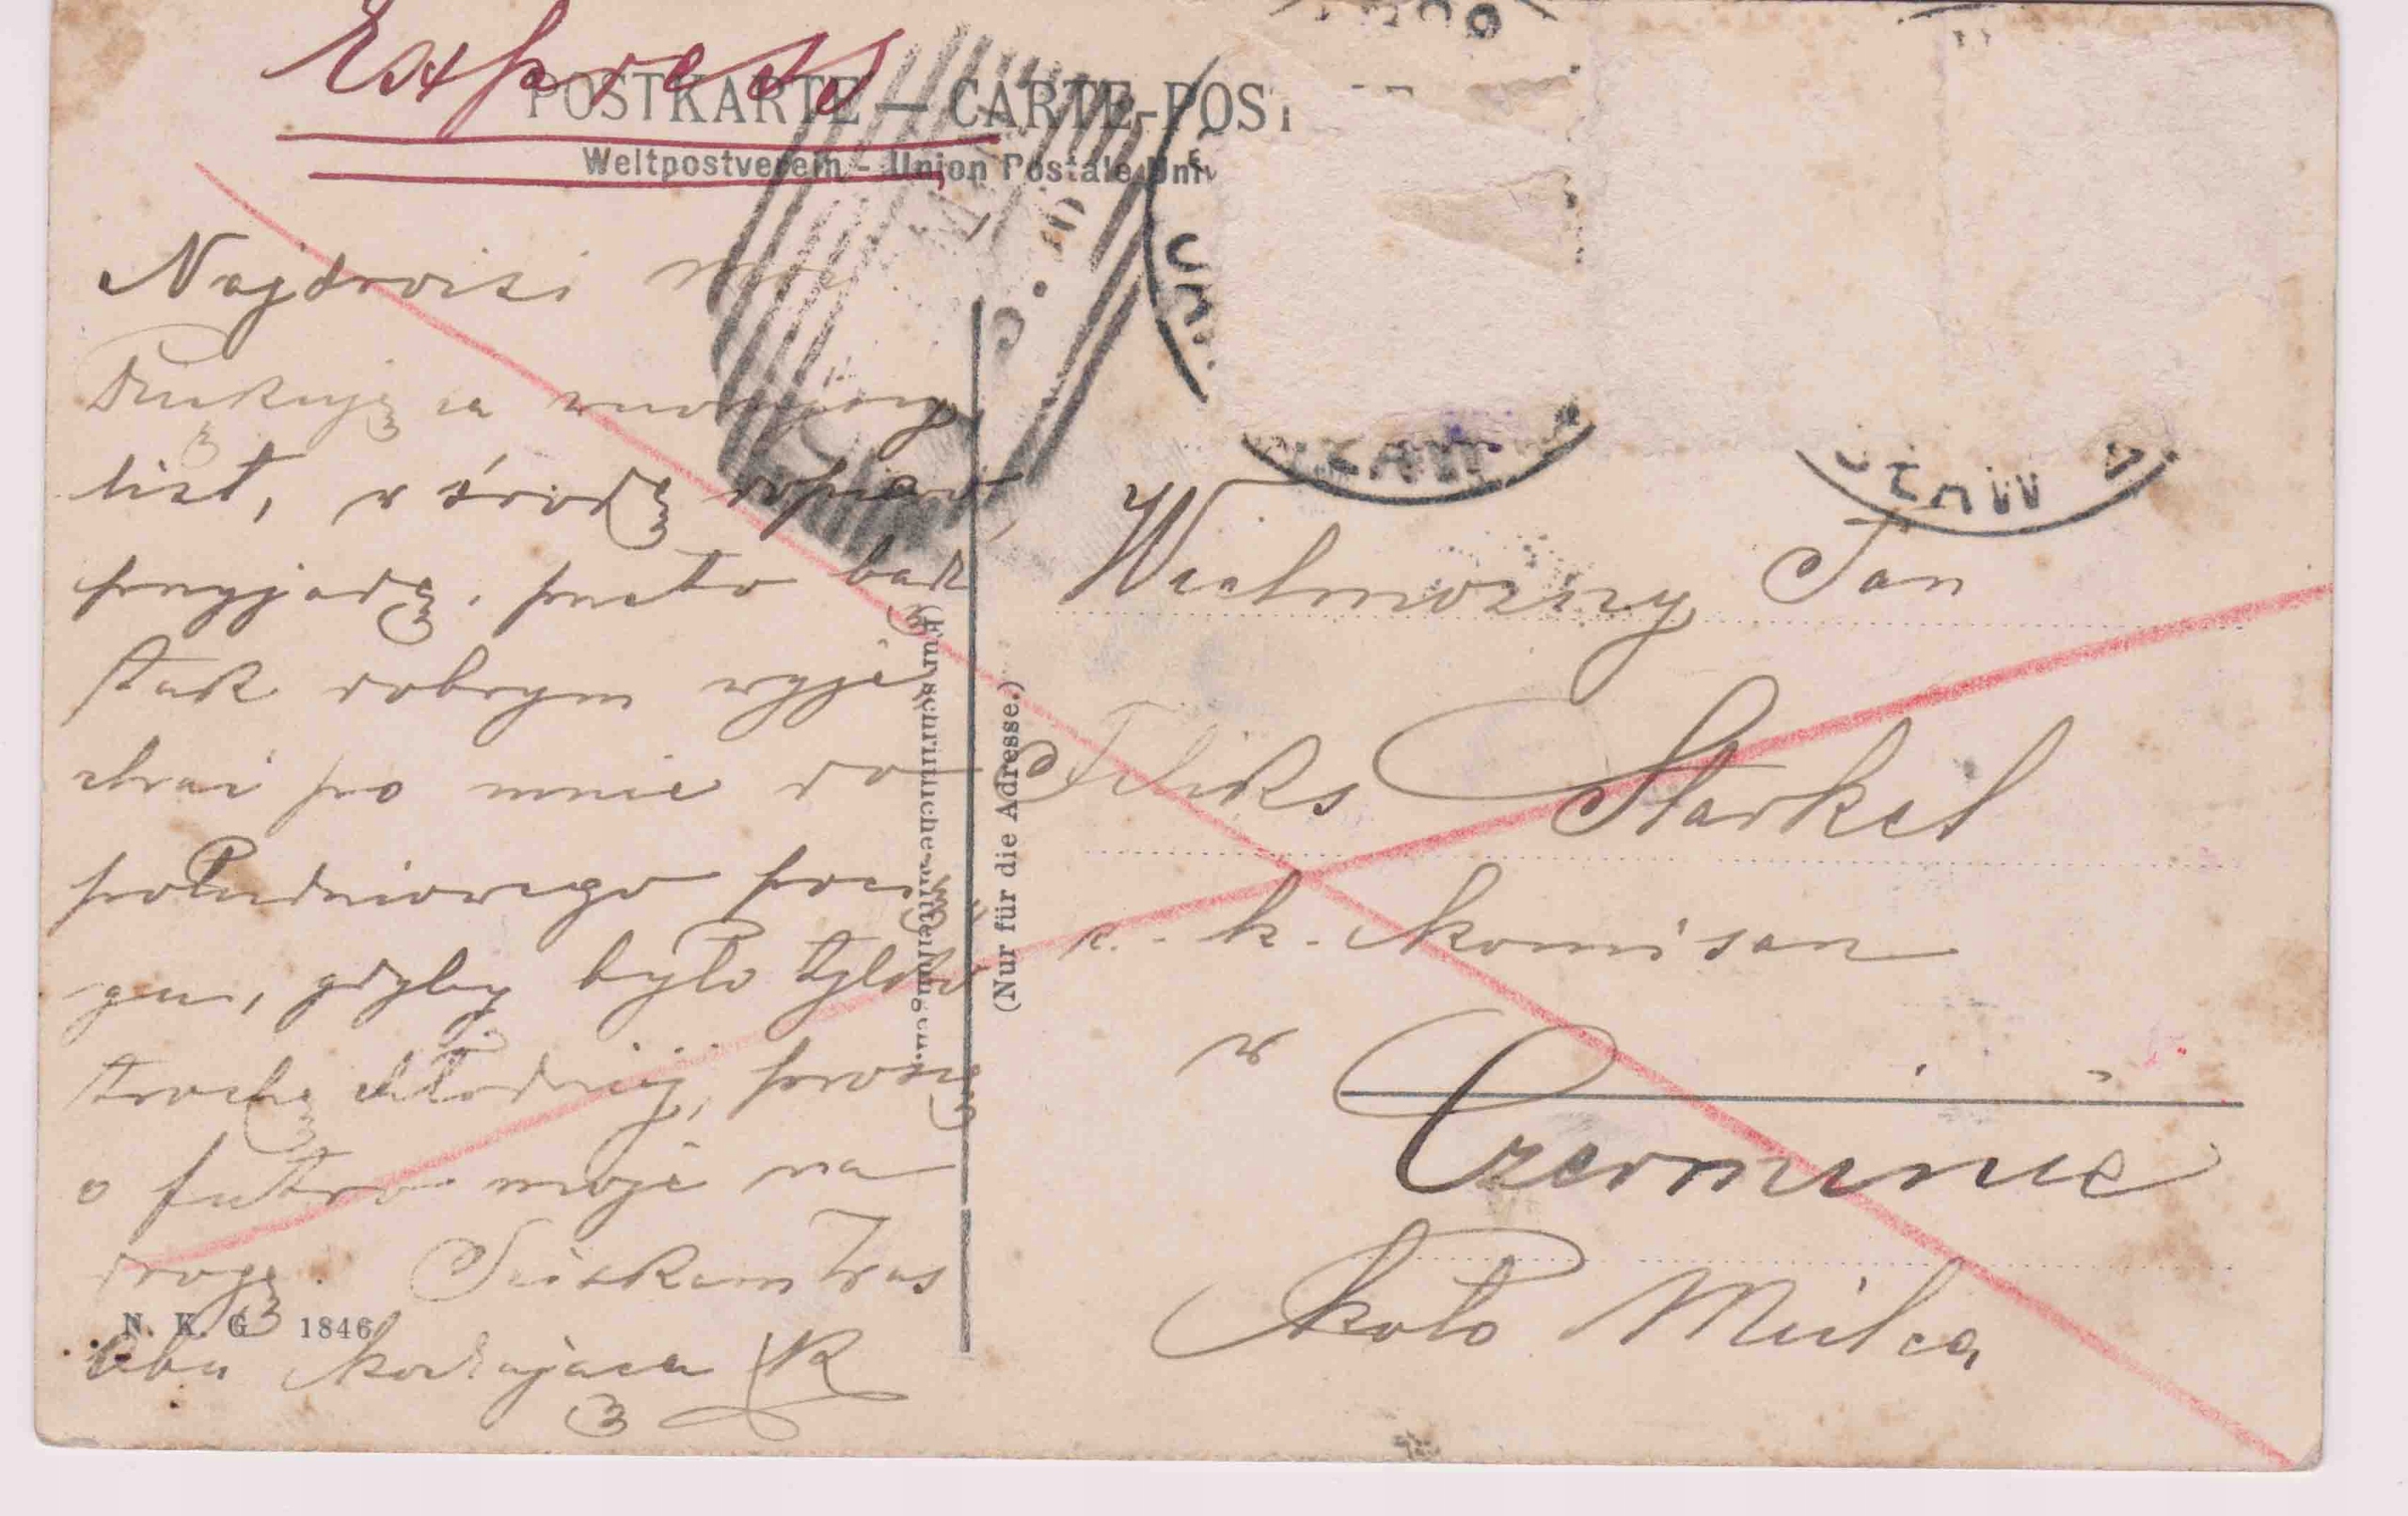 Express
POSTKARTE — CARTE-POST
Weltpostverein - Union Postale Univ
Najdrożsi moi
Dziękuję za wczorajszy
list, w środę dopiero
przyjadę, przeto bądź
tak dobrym wyje
chać po mnie do
południowego pocią
gu, gdyby było tylko
trochę chłodniej, proszę
o futro moje na
drogę. Ściskam Was
oba kochająca K
N. K. G. 1846
(Für schriftliche Mitteilungen.)
(Nur für die Adresse.)
Wielmożny Pan
Feliks Starkel
c. k. komisarz
w
Czerminie
koło Mielca